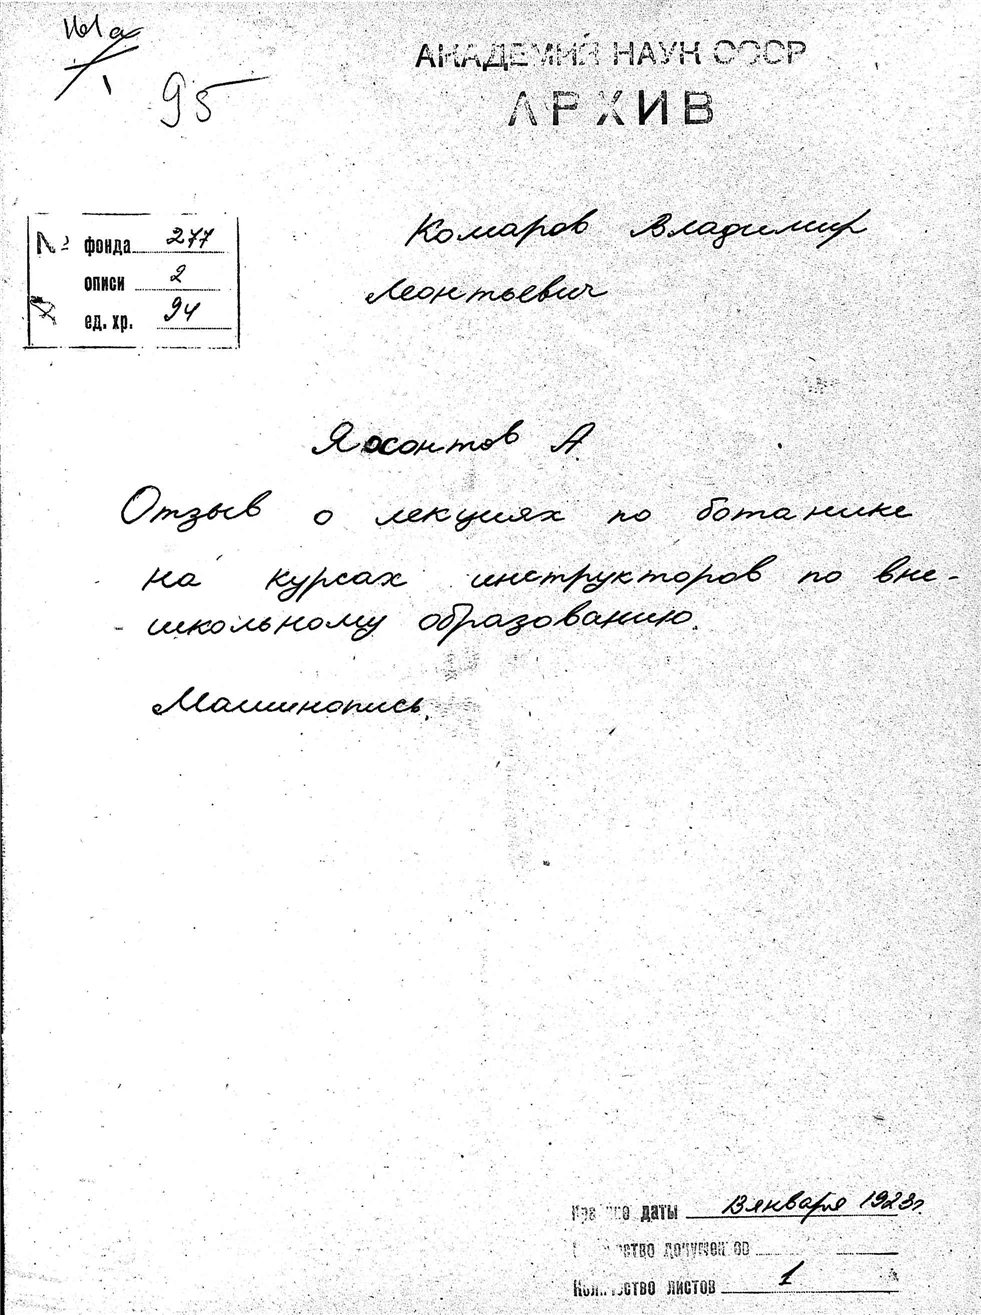 95
АКАДЕМИЯ НАУК СССР
АРХИВ
№ фонда 277
описи 2
ед. хр. 94
Комаров Владимир
Леонтьевич
А.
Отзыв о лекциях по ботанике
на курсах инструкторов по вне-
школьному образованию.
Машинопись.
Крайние даты 3 января 1923г.
Количество документов
Количество листов 1